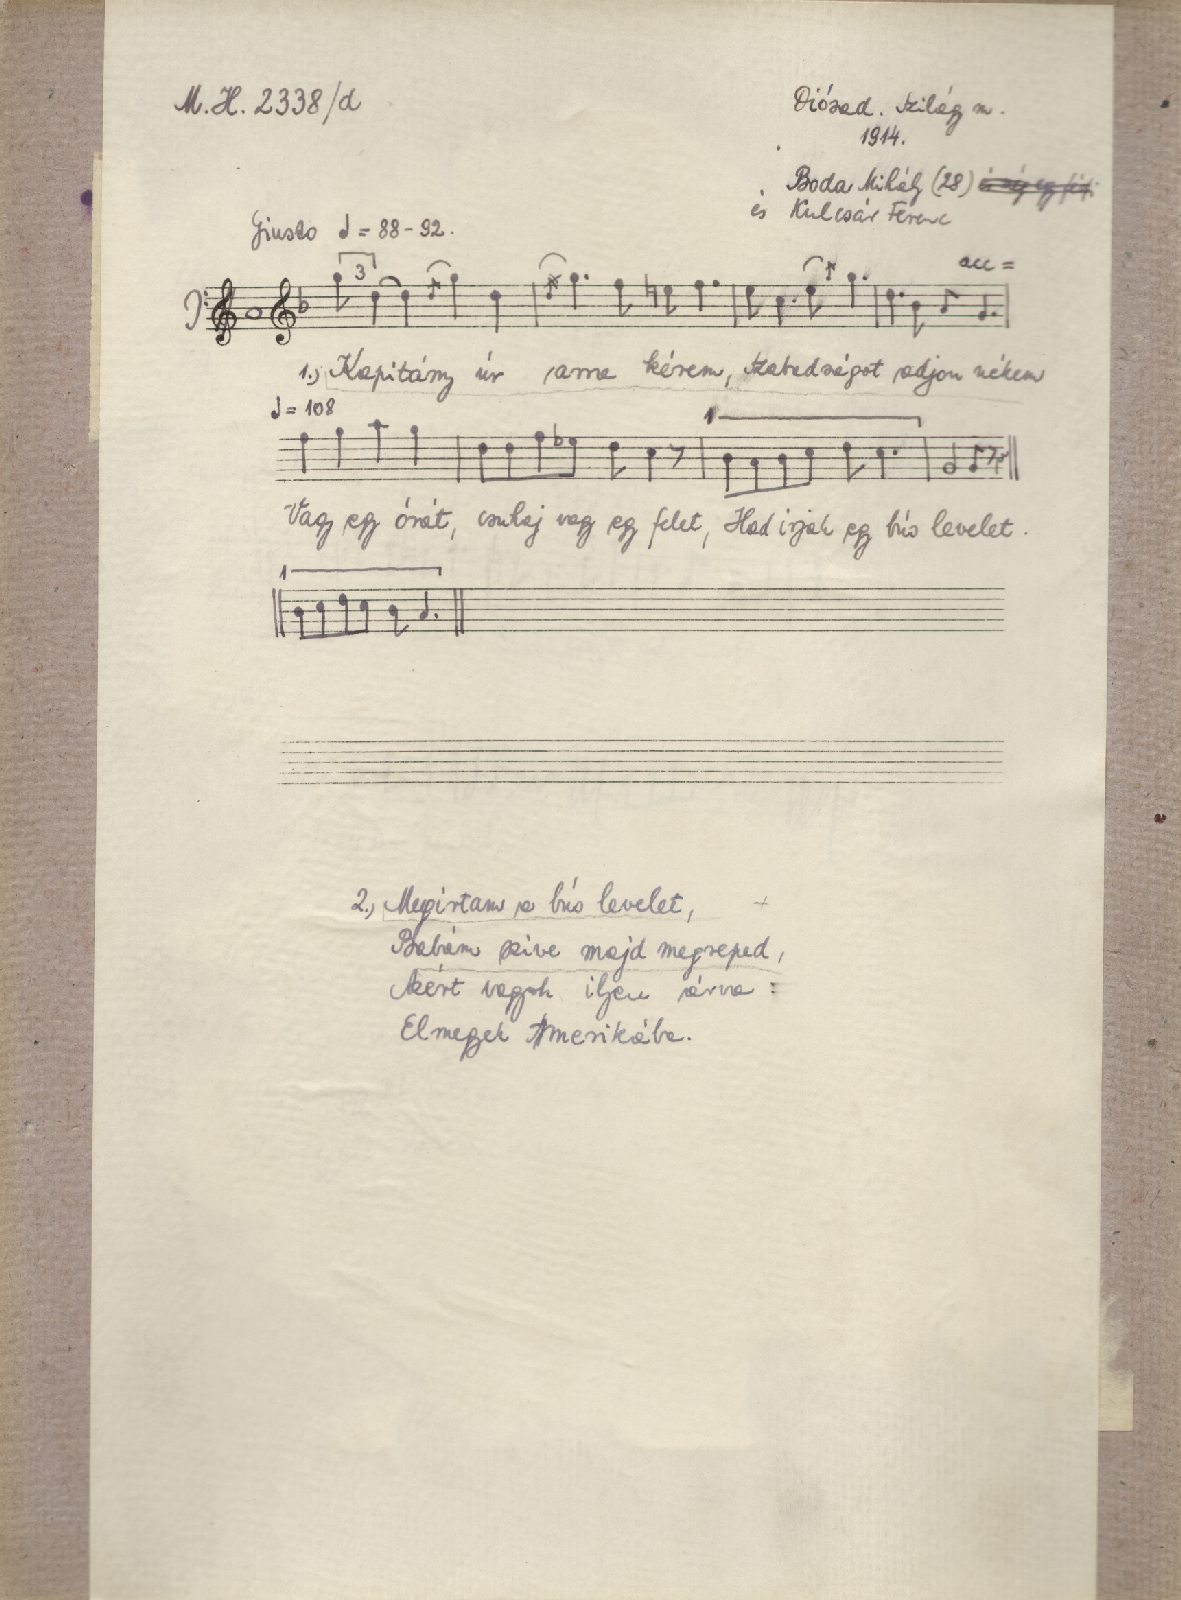 M.H. 2338/d
Diósad. Szilágy m.
1914.
Boda Mihály (28)
és Kulcsár Ferenc
Giusto ♩ = 88-92.
3
acc =
1.) Kapitány úr arra kérem, Szabadságot adjon nékem
♩ = 108
1
Vagy egy órát, csuhaj vagy egy felet, Had irjak egy bús levelet.
1
2.) Megirtam a bús levelet,
Babám szive majd megreped,
Azért vagyok ilyen árva :
Elmegyek Amerikába.